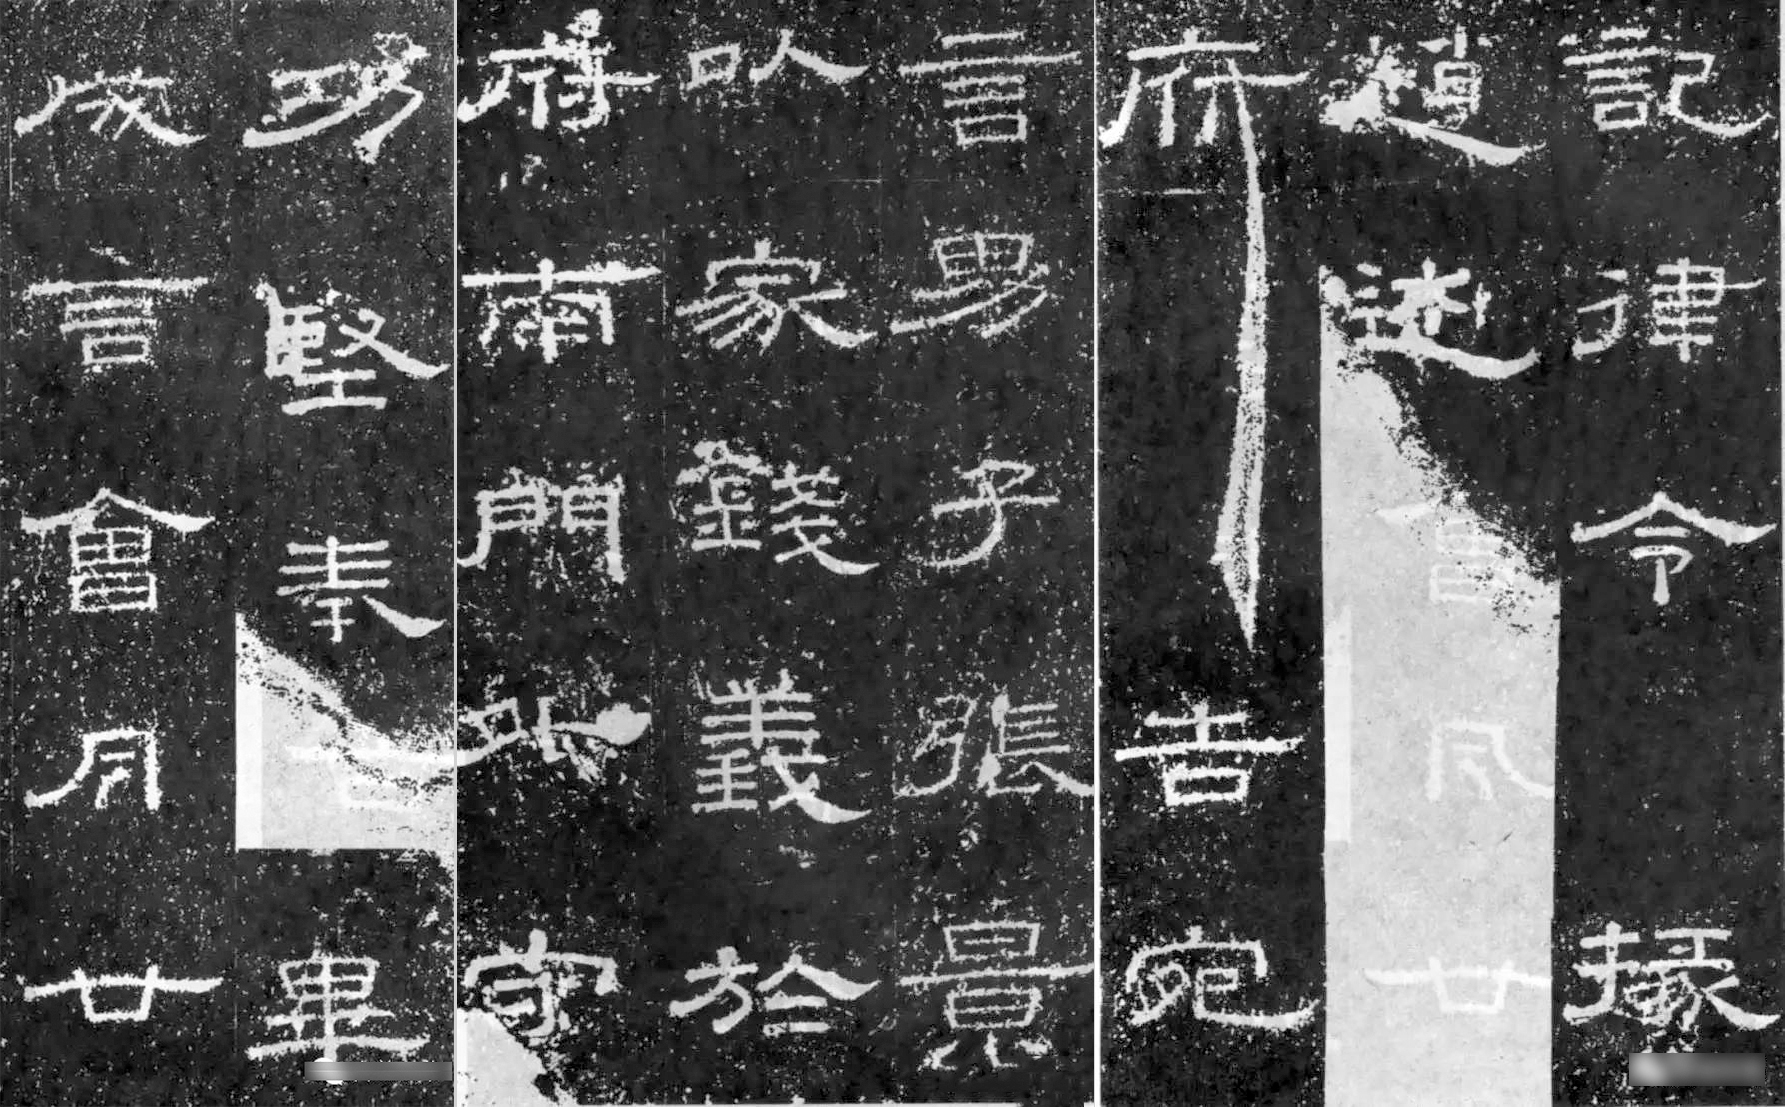 記律令掾
趙述會月廿
府告宛
言男子張景
以家錢義於
府南門外守
功堅奉畢
成言會月廿